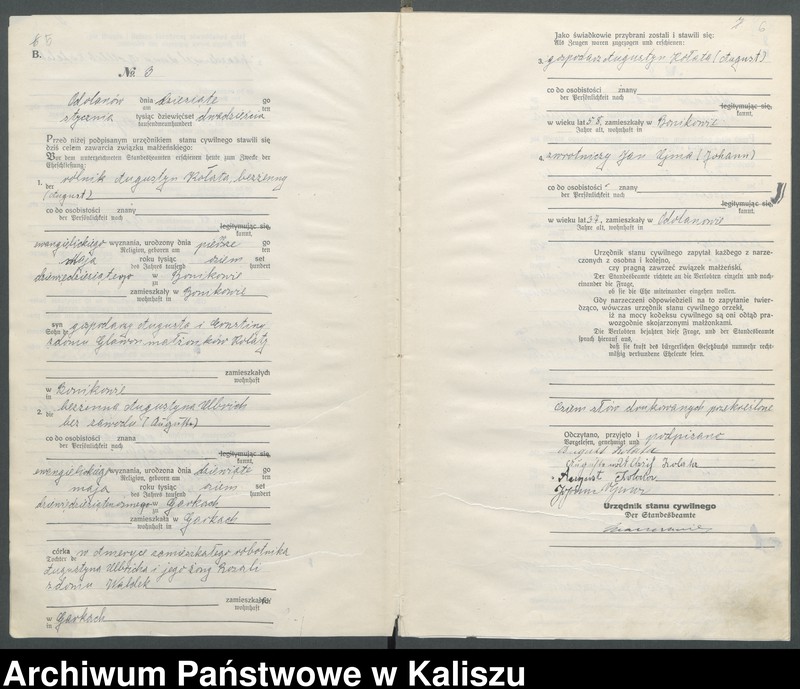 B.
№ 3
Odolanów dnia dziesiąte go
am ten
stycznia tysiąc dziewięćset dwudziestu
tausendneunhundert
Przed niżej podpisanym urzędnikiem stanu cywilnego stawili się
dziś celem zawarcia związku małżeńskiego:
Vor dem unterzeichneten Standesbeamten erschienen heute zum Zwecke der
Eheschließung:
1. rolnik Augustyn Kolata, bezżenny
der
(August)
co do osobistości znany
der Persönlichkeit nach
legitymując się,
kannt,
ewangielickiego wyznania, urodzony dnia pierwsze go
Religion, geboren am ten
maja roku tysiąc ośm set
des Jahres tausend hundert
dziewięćdziesiątego w Bonikowie
zu
zamieszkały w Bonikowie
wohnhaft in
syn gospodarza Augusta i
Sohn
z domu małżonków Kolatj
zamieszkałych
wohnhaft
w Bonikowie
in
2. bezżenna Augustyna Ulbrich
die
bez zawodu (Augusta)
co do osobistości znana
der Persönlichkeit nach
legitymując się,
kannt,
ewangielickiego wyznania, urodzona dnia dziewiąte go
Religion, geboren am ten
maja roku tysiąc ośm set
des Jahres tausend hundert
w Garkach
zu
zamieszkała w Garkach
wohnhaft in
córka w Ameryce zamieszkałego robotnika
Tochter de
Augustyna Ulbricha i jego żony Rozali
z domu Waldek
zamieszkałych
wohnhaft
w Garkach
in
7 6
Jako świadkowie przybrani zostali i stawili się:
Als Zeugen waren zugezogen und erschienen:
3. gospodarz Augustyn Kolata (August)
co do osobistości znany
der Persönlichkeit nach
legitymując się,
kannt,
w wieku lat 58, zamieszkały w Bonikowie
Jahre alt, wohnhaft in
4. zwrotniczy Jan (Johann)
co do osobistości znany
der Persönlichkeit nach
legitymując się,
kannt,
w wieku lat 37, zamieszkały w Odolanowie
Jahre alt, wohnhaft in
Urzędnik stanu cywilnego zapytał każdego z narze-
czonych z osobna i kolejno,
czy pragną zawrzeć związek małżeński.
Der Standesbeamte richtete an die Verlobten einzeln und nach-
einander die Frage,
ob sie die Ehe miteinander eingehen wollen.
Gdy narzeczeni odpowiedzieli na to zapytanie twier-
dząco, wówczas urzędnik stanu cywilnego orzekł,
iż na mocy kodeksu cywilnego są oni obtąd pra-
wozgodnie skojarzonymi małżonkami.
Die Verlobten bejahten diese Frage, und der Standesbeamte
sprach hierauf aus,
daß sie kraft des bürgerlichen Gesetzbuchs nunmehr recht-
mäßig verbundene Eheleute seien.
Ośm słów drukowanych przekreślono
Odczytano, przyjęto i podpisano
Vorgelesen, genehmigt und
August Kolata
Augusta Kolata
August Kolata
Urzędnik stanu cywilnego
Der Standesbeamte
Archiwum Państwowe w Kaliszu